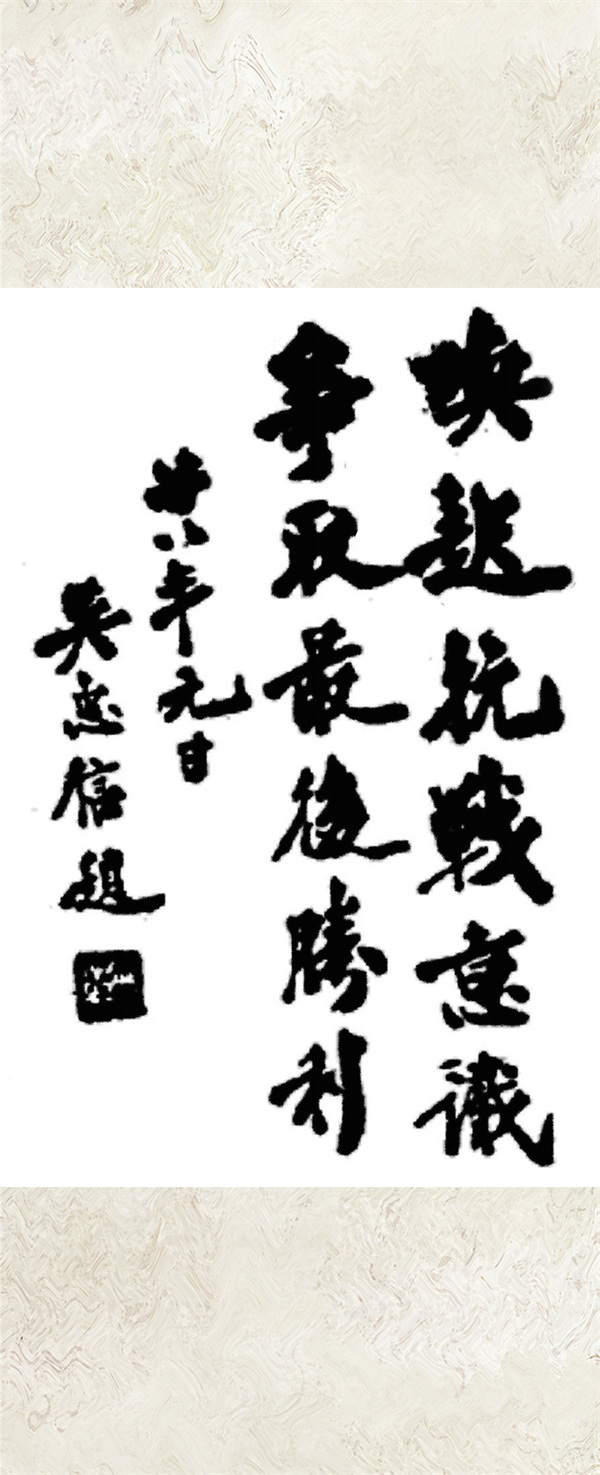 喚起抗戰意識
爭取最後勝利
廿八年元日
吳忠信題